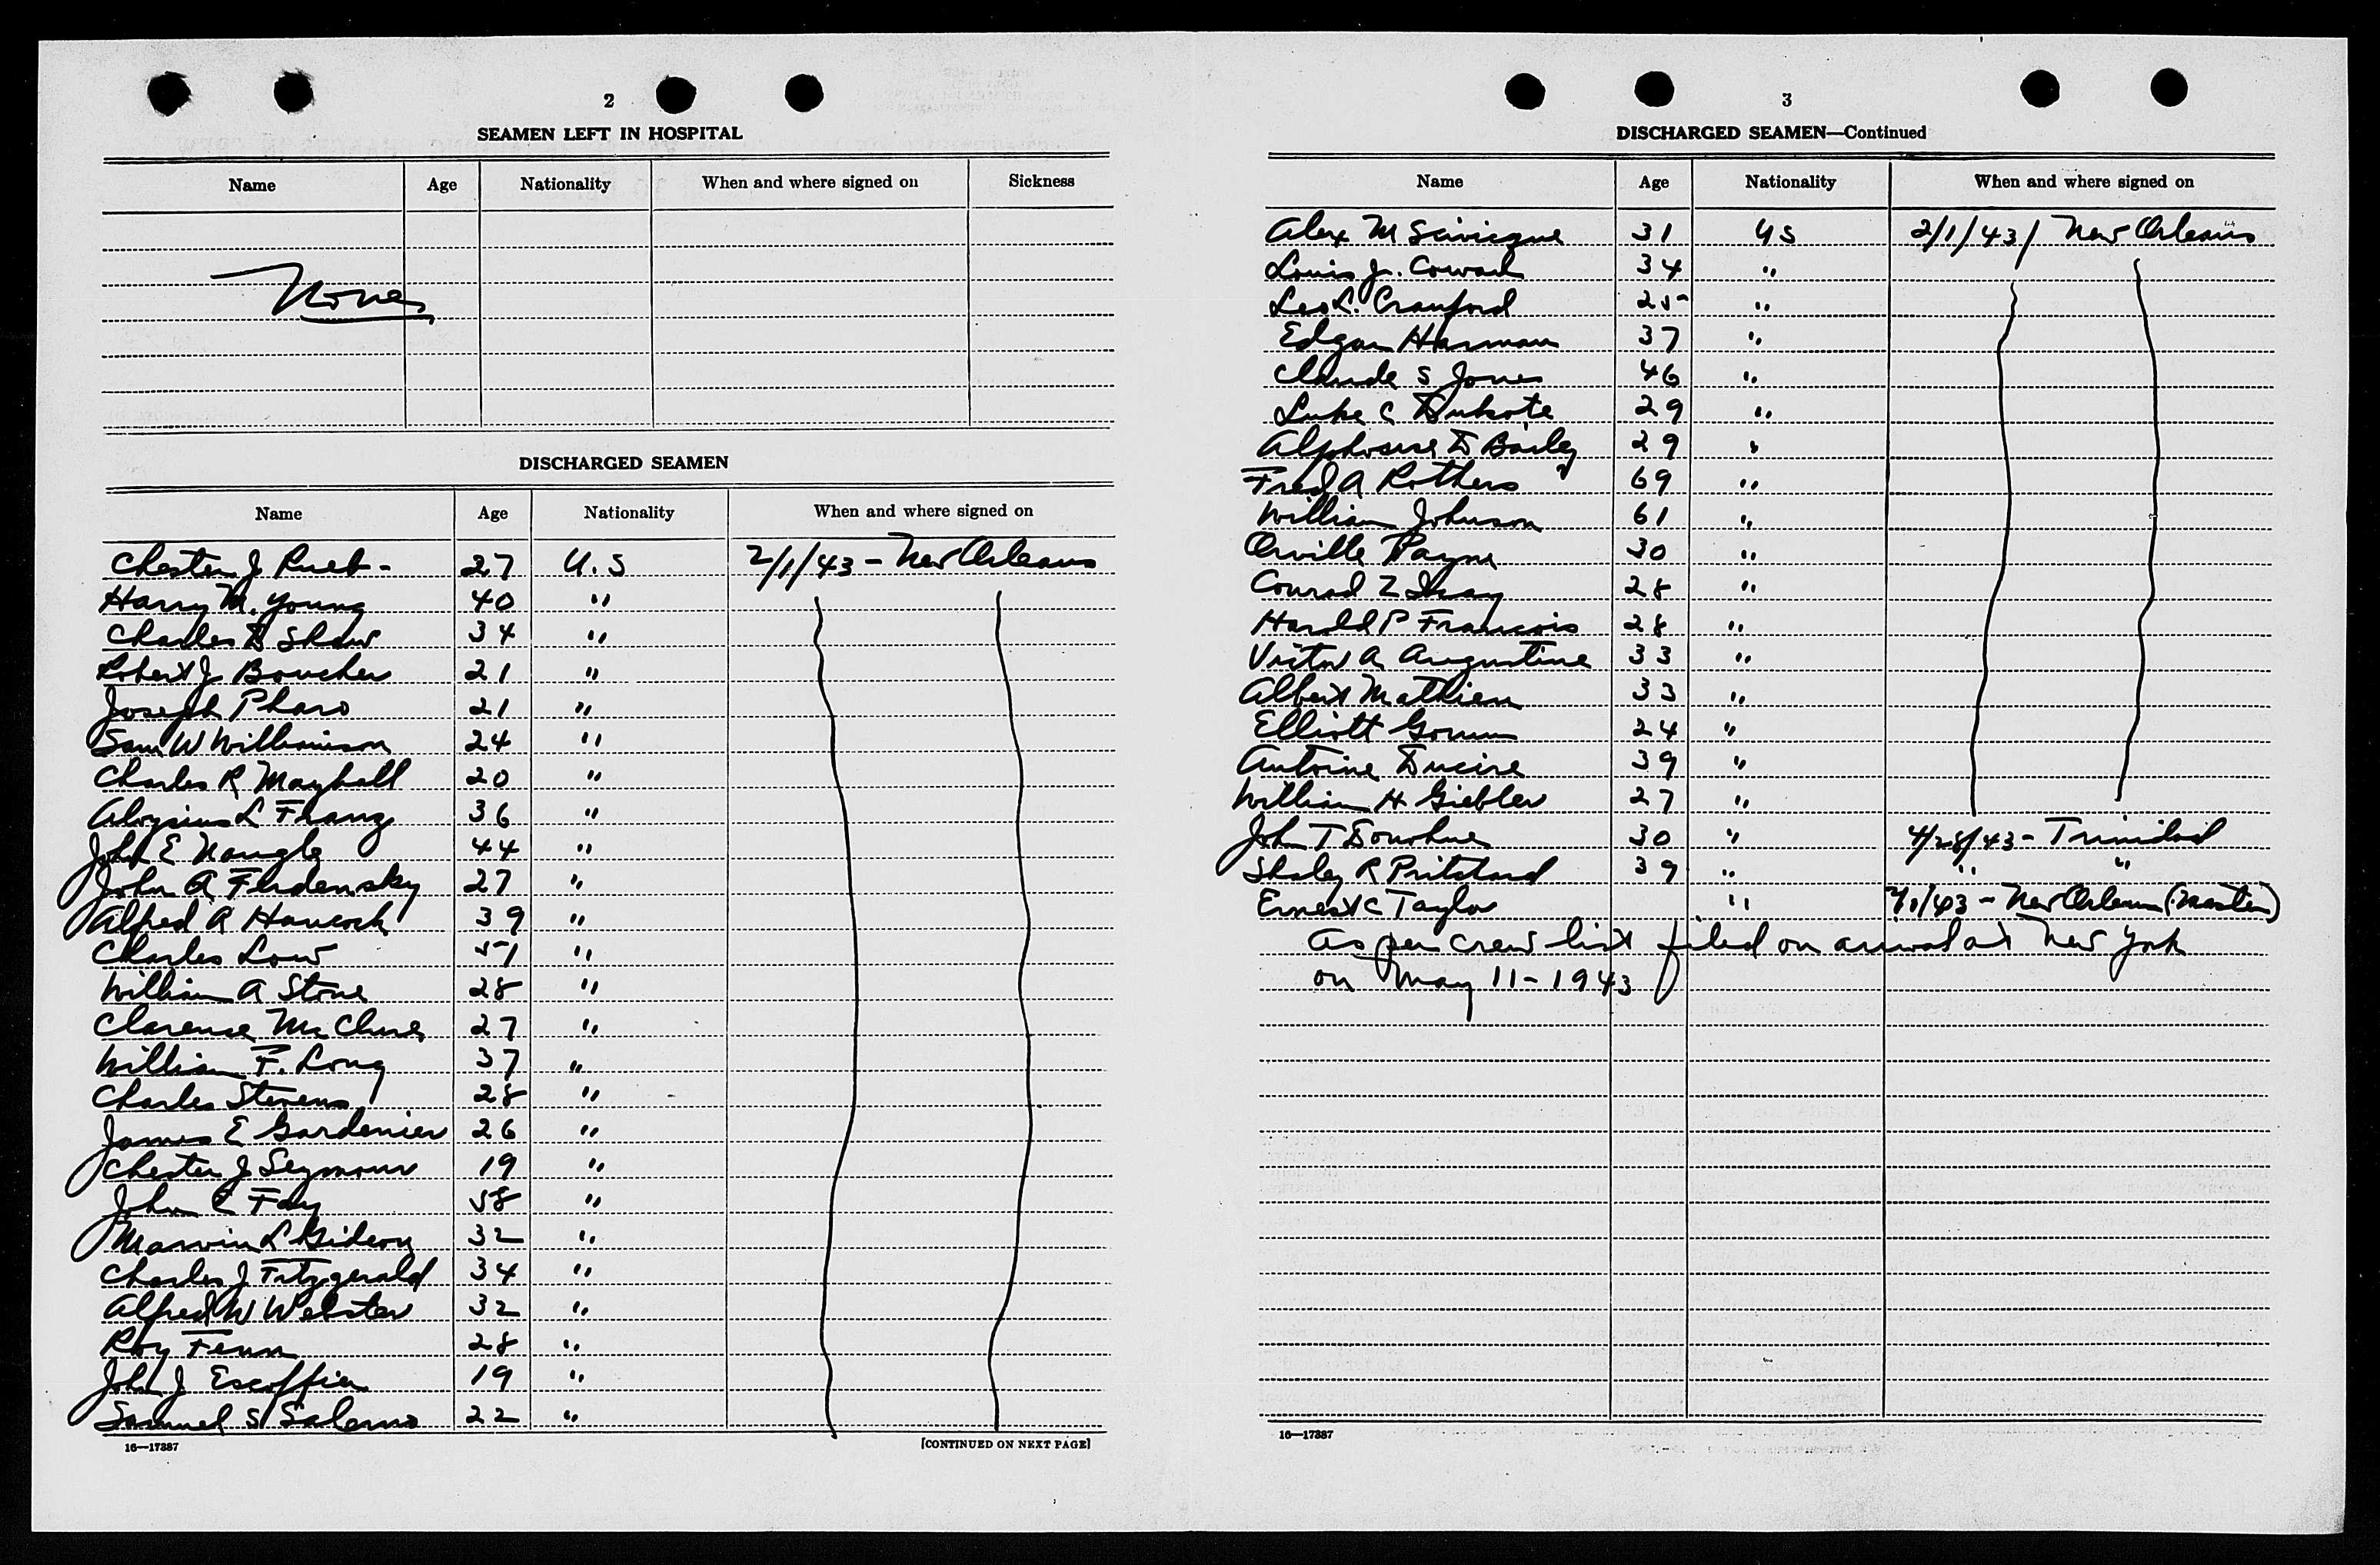 2
SEAMEN LEFT IN HOSPITAL
Name Age Nationality When and where signed on Sickness
None
DISCHARGED SEAMEN
Name Age Nationality When and where signed on
Chester J Rueb - 27 U.S 2/1/43 - New Orleans
Harry M. Young 40 "
Charles D Shaw 34 "
Robert J Boucher 21 "
Joseph Pharo 21 "
Sam W Williamson 24 "
Charles R Mayhall 20 "
Aloysius L Franz 36 "
John E Nangle 44 "
John A Ferdensky 27 "
Alfred A Hancock 39 "
Charles Low 51 "
William A Stone 28 "
Clarence McClure 27 "
William F. Long 37 "
Charles Stevens 28 "
James E Gardenier 26 "
Chester J Seymour 19 "
John C Fay 58 "
Marvin L Gideon 32 "
Charles J Fitzgerald 34 "
Alfred W Webster 32 "
Roy Fenn 28 "
John J Escoffier 19 "
Samuel S Salerno 22 "
16—17387 [CONTINUED ON NEXT PAGE]
3
DISCHARGED SEAMEN—Continued
Name Age Nationality When and where signed on
Alex M Scivicque 31 US 2/1/43/ New Orleans
Louis Jr. Coward 34 "
Leo L. Cranford 25 "
Edgar Harman 37 "
Claude S Jones 46 "
Luke C Dukote 29 "
Alphonse D Bailey 29 "
Fred A Rothers 69 "
William Johnson 61 "
Orville Payne 30 "
Conrad Z 28 "
Harold P Francois 28 "
Victor A Augustine 33 "
Albert Mathieu 33 "
Elliott 24 "
Antoine 39 "
William H Giebler 27 "
John T Donohue 30 " 4/28/43 - Trinidad
R Pritchard 39 " " "
Ernest C Taylor " 2/1/43 - New Orleans (Master)
As per crew list filed on arrival at New York
on May 11 - 1943
16—17387